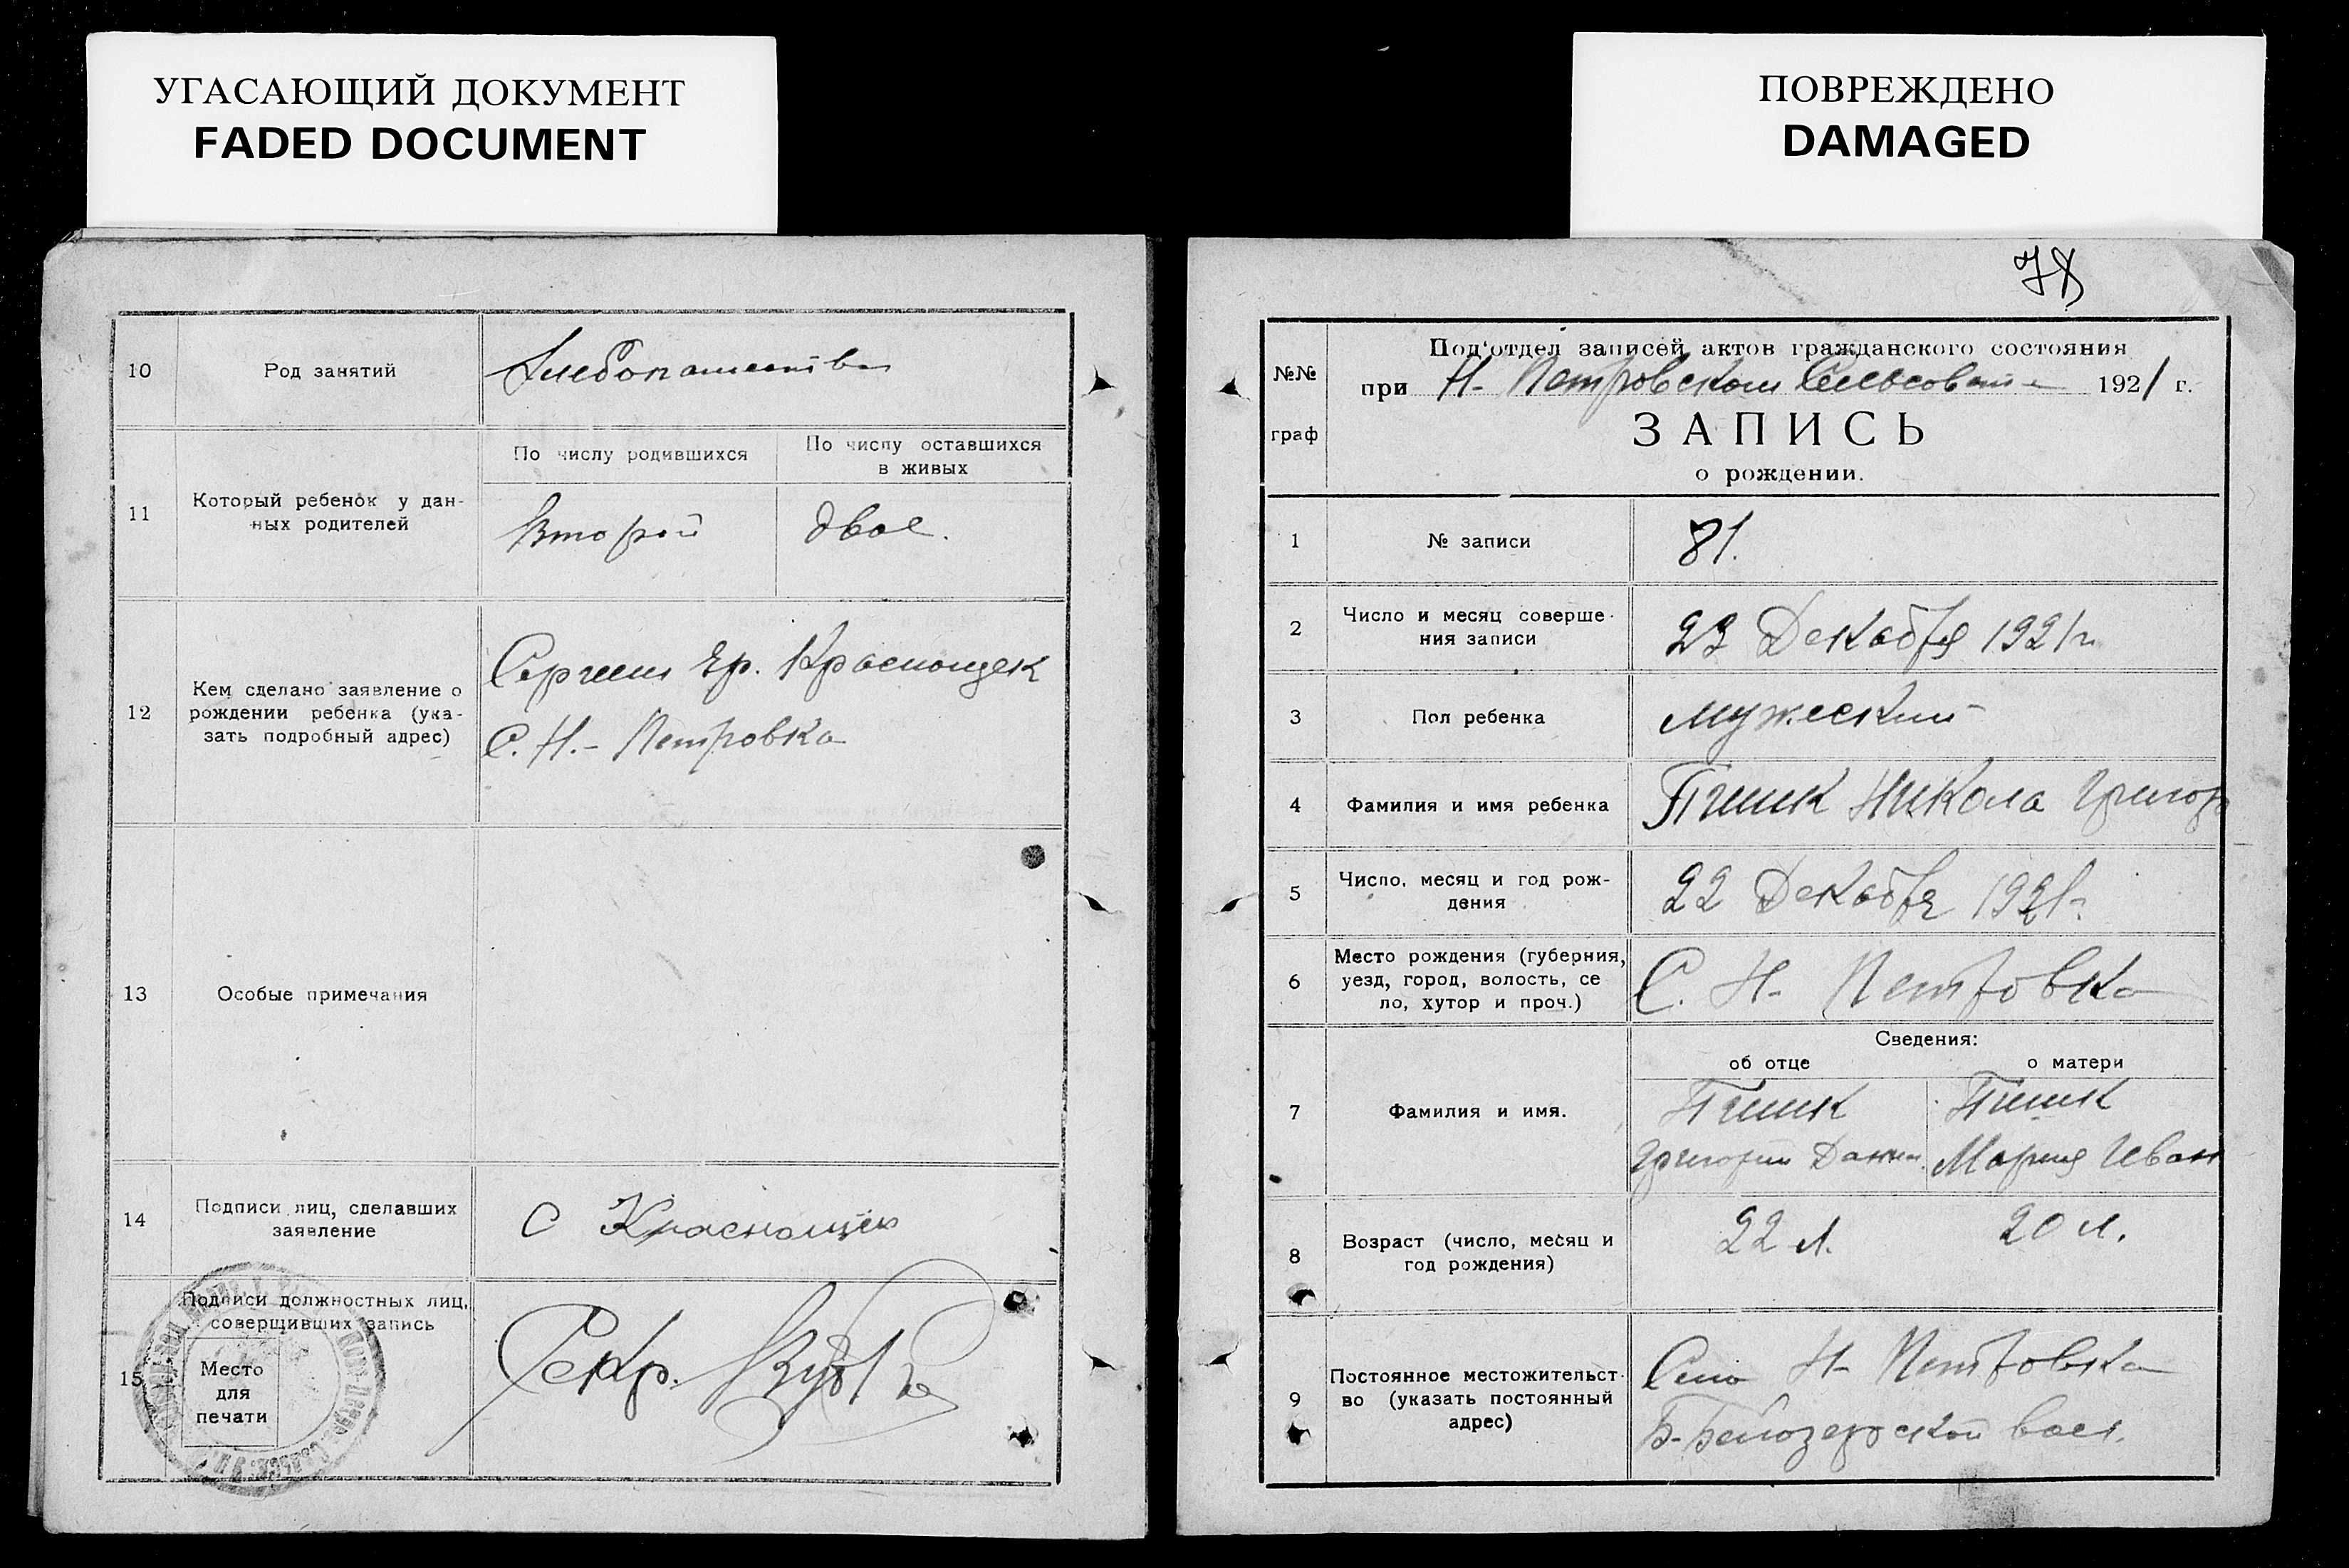 УГАСАЮЩИЙ ДОКУМЕНТ
FADED DOCUMENT
10
Род занятий
Хлебопашество
11
Который ребенок у дан-
ных родителей
По числу родившихся
По числу оставшихся
в живых
Второй
двое.
12
Кем сделано заявление о
рождении ребенка (ука-
зать подробный адрес)
Сергеем Гр. Краснощек
С. Н.- Петровка
13
Особые примечания
14
Подписи лиц, сделавших
заявление
С Краснощек
15
Подписи должностных лиц,
совершивших запись
Место
для
печати
Секр.
ПОВРЕЖДЕНО
DAMAGED
78
№№
граф
Под'отдел записей актов гражданского состояния
при Н- Петровском Сельсовете 1921 г.
ЗАПИСЬ
о рождении.
1
№ записи
81.
2
Число и месяц соверше-
ния записи
23 Декабря 1921 г
3
Пол ребенка
мужеский
4
Фамилия и имя ребенка
Никола Григор
5
Число, месяц и год рож-
дения
22 Декабря 1921 г.
6
Место рождения (губерния,
уезд, город, волость, се
ло, хутор и проч.)
С. Н- Петровка
Сведения:
об отце
о матери
7
Фамилия и имя.
Григорий Данил.
Мария Иван
8
Возраст (число, месяц и
год рождения)
22 л.
20 л.
9
Постоянное местожительст-
во (указать постоянный
адрес)
Село Н- Петровка
Б-Белозерской вол.